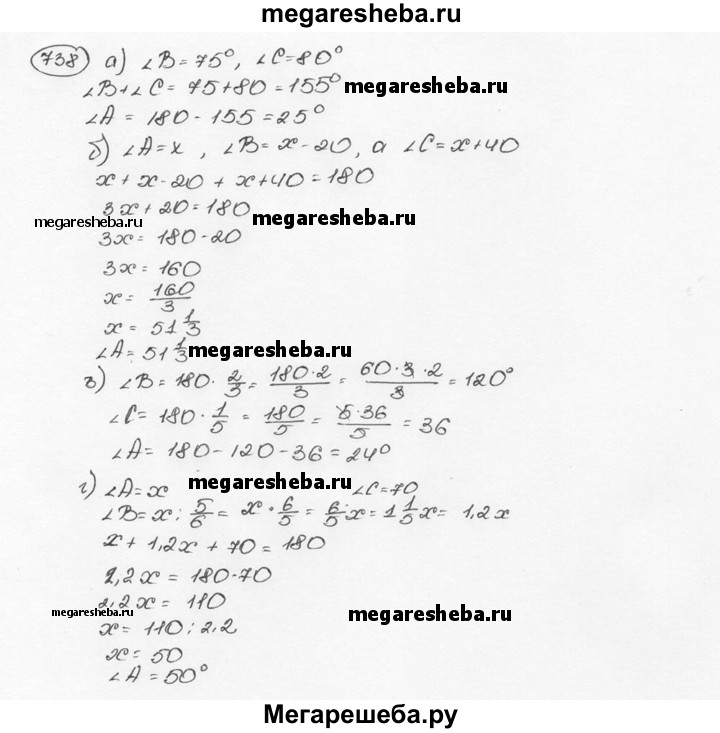 megaresheba.ru
738 а) ∠B = 75°, ∠C = 80°
∠B + ∠C = 75 + 80 = 155° megaresheba.ru
∠A = 180 - 155 = 25°
б) ∠A = x, ∠B = x - 20, а ∠C = x + 40
x + x - 20 + x + 40 = 180
3x + 20 = 180
megaresheba.ru megaresheba.ru
3x = 180 - 20
3x = 160
x = 160/3
x = 51 1/3
∠A = 51 1/3 megaresheba.ru
в) ∠B = 180 · 2/3 = 180·2/3 = 60·3·2/3 = 120°
∠C = 180 · 1/5 = 180/5 = 5·36/5 = 36
∠A = 180 - 120 - 36 = 24°
г) ∠A = x megaresheba.ru ∠C = 70
∠B = x : 5/6 = x · 6/5 = 6/5 x = 1 1/5 x = 1,2x
x + 1,2x + 70 = 180
2,2x = 180 - 70
2,2x = 110
megaresheba.ru megaresheba.ru
x = 110 : 2,2
x = 50
∠A = 50°
Мегарешеба.ру